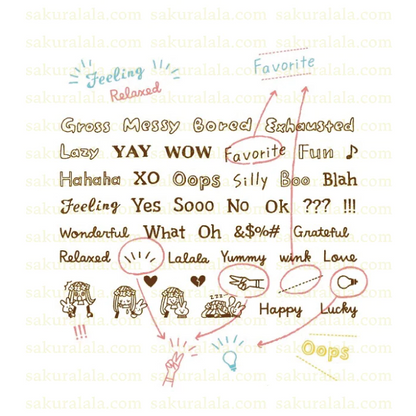 sakuralala.com sakuralala.com sakuralala.com
Feeling
Relaxed
Favorite
Gross Messy Bored Exhausted
Lazy YAY WOW Favorite Fun ♪
Hahaha XO Oops Silly Boo Blah
Feeling Yes Sooo No Ok ??? !!!
Wonderful What Oh &$%# Grateful
Relaxed Lalala Yummy wink Love
Happy Lucky
!!!
Oops
sakuralala.com sakuralala.com sakuralala.com